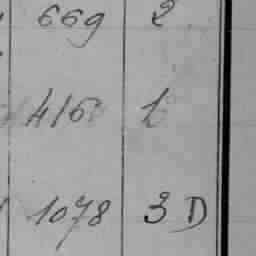 669 2
416 1
1078 3 D